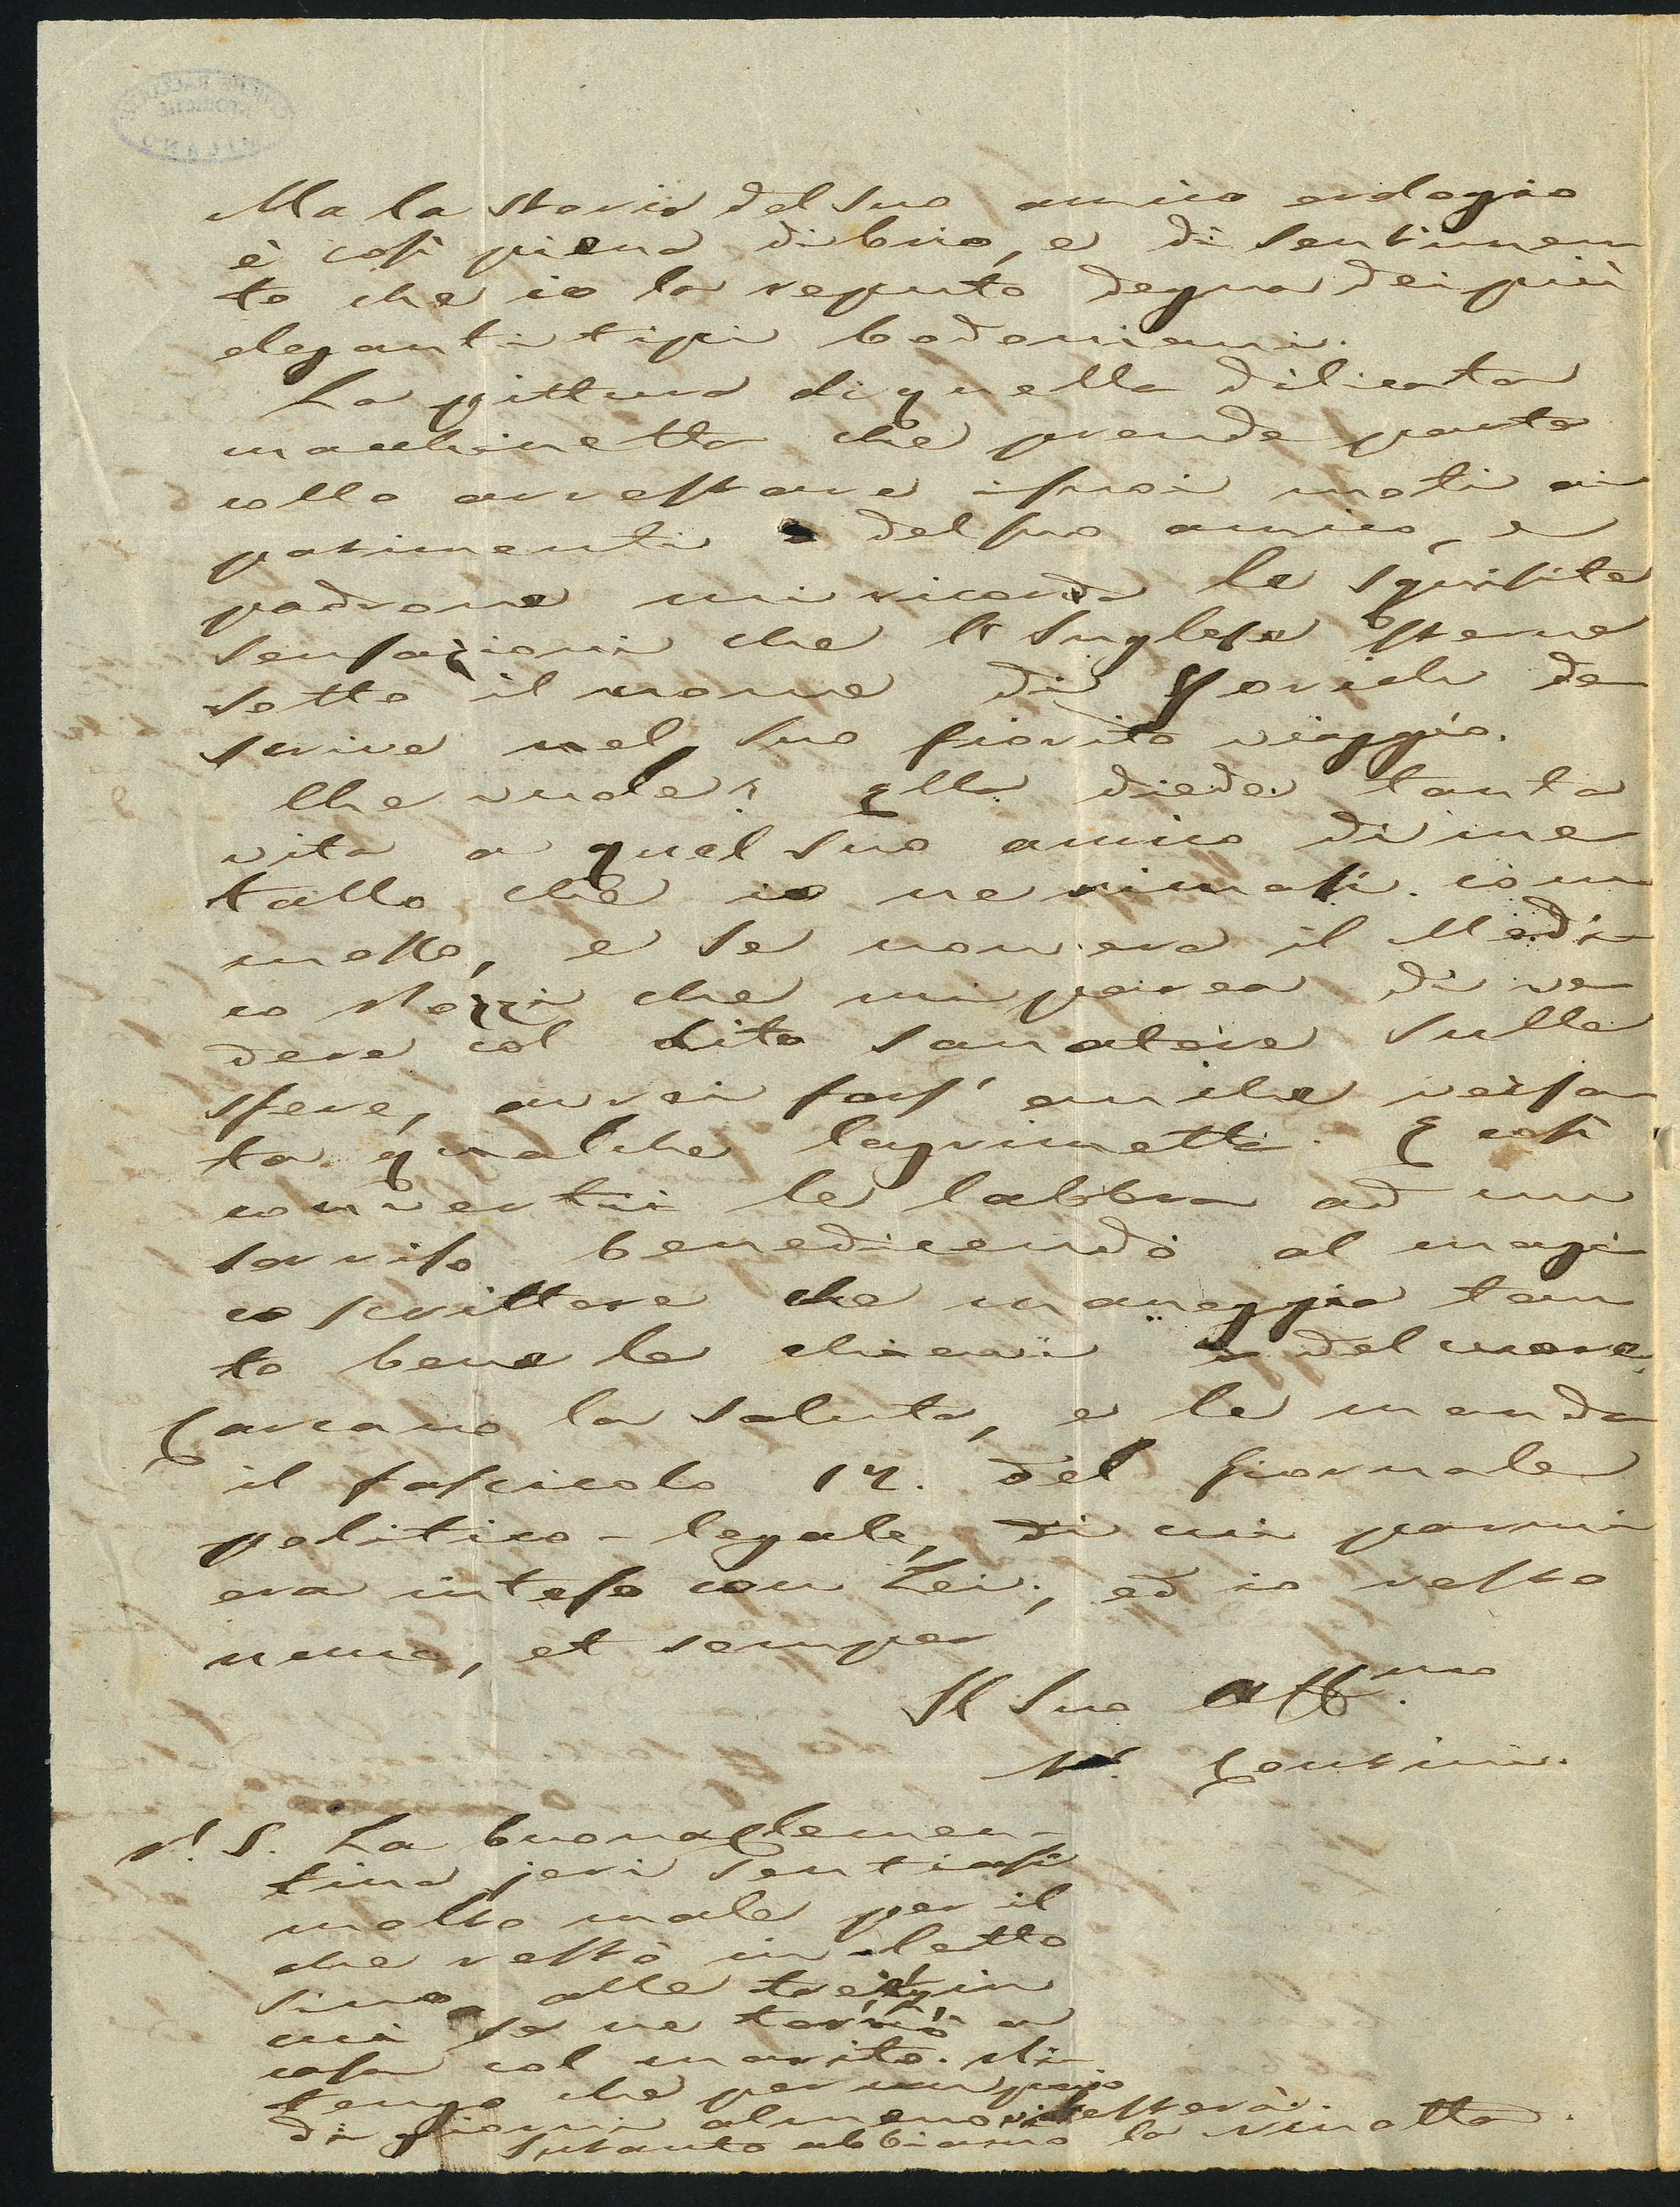 Ma la storia del suo amico orologio
è così piena di brio, e di sentimen
to che io la reputo degna dei più
eleganti tipi bodoniani.
La pittura di quella dilicata
macchinetta che prende parte
collo arrestare i suoi moti ai
patimenti del suo amico, e
padrone mi ricorda le squisite
sensazioni che l'Inglese Sterne
sotto il nome di Yorich de
scrive nel suo fiorito viaggio.
Che vuole? Ella diede tanta
vita a quel suo amico di me
tallo che io ne rimasi com
mosso, e se non era il Medi
co che mi parea di ve
dere col dito sanatore sulle
sfere, avrei fors' anche versa
ta qualche lagrimetta. E così
convertii le labbra ad un
sorriso benedicendo al magi
co scrittore che maneggia tan
to bene le chiavi del cuore.
Carcano la saluta, e le manda
il fascicolo 12. del Giornale
politico-legale, di cui parmi
era inteso con Lei; ed io resto
nunc, et semper
Il Suo Aff.mo
P. Contini.
P. S. La buona Clemen-
tina jeri sentiasi
molto male per il
che restò in letto
sino alle tre, in
cui se ne tornò a
casa col marito. Ri
tengo che per un pajo
di giorni almeno vi resterà.
Intanto abbiamo la